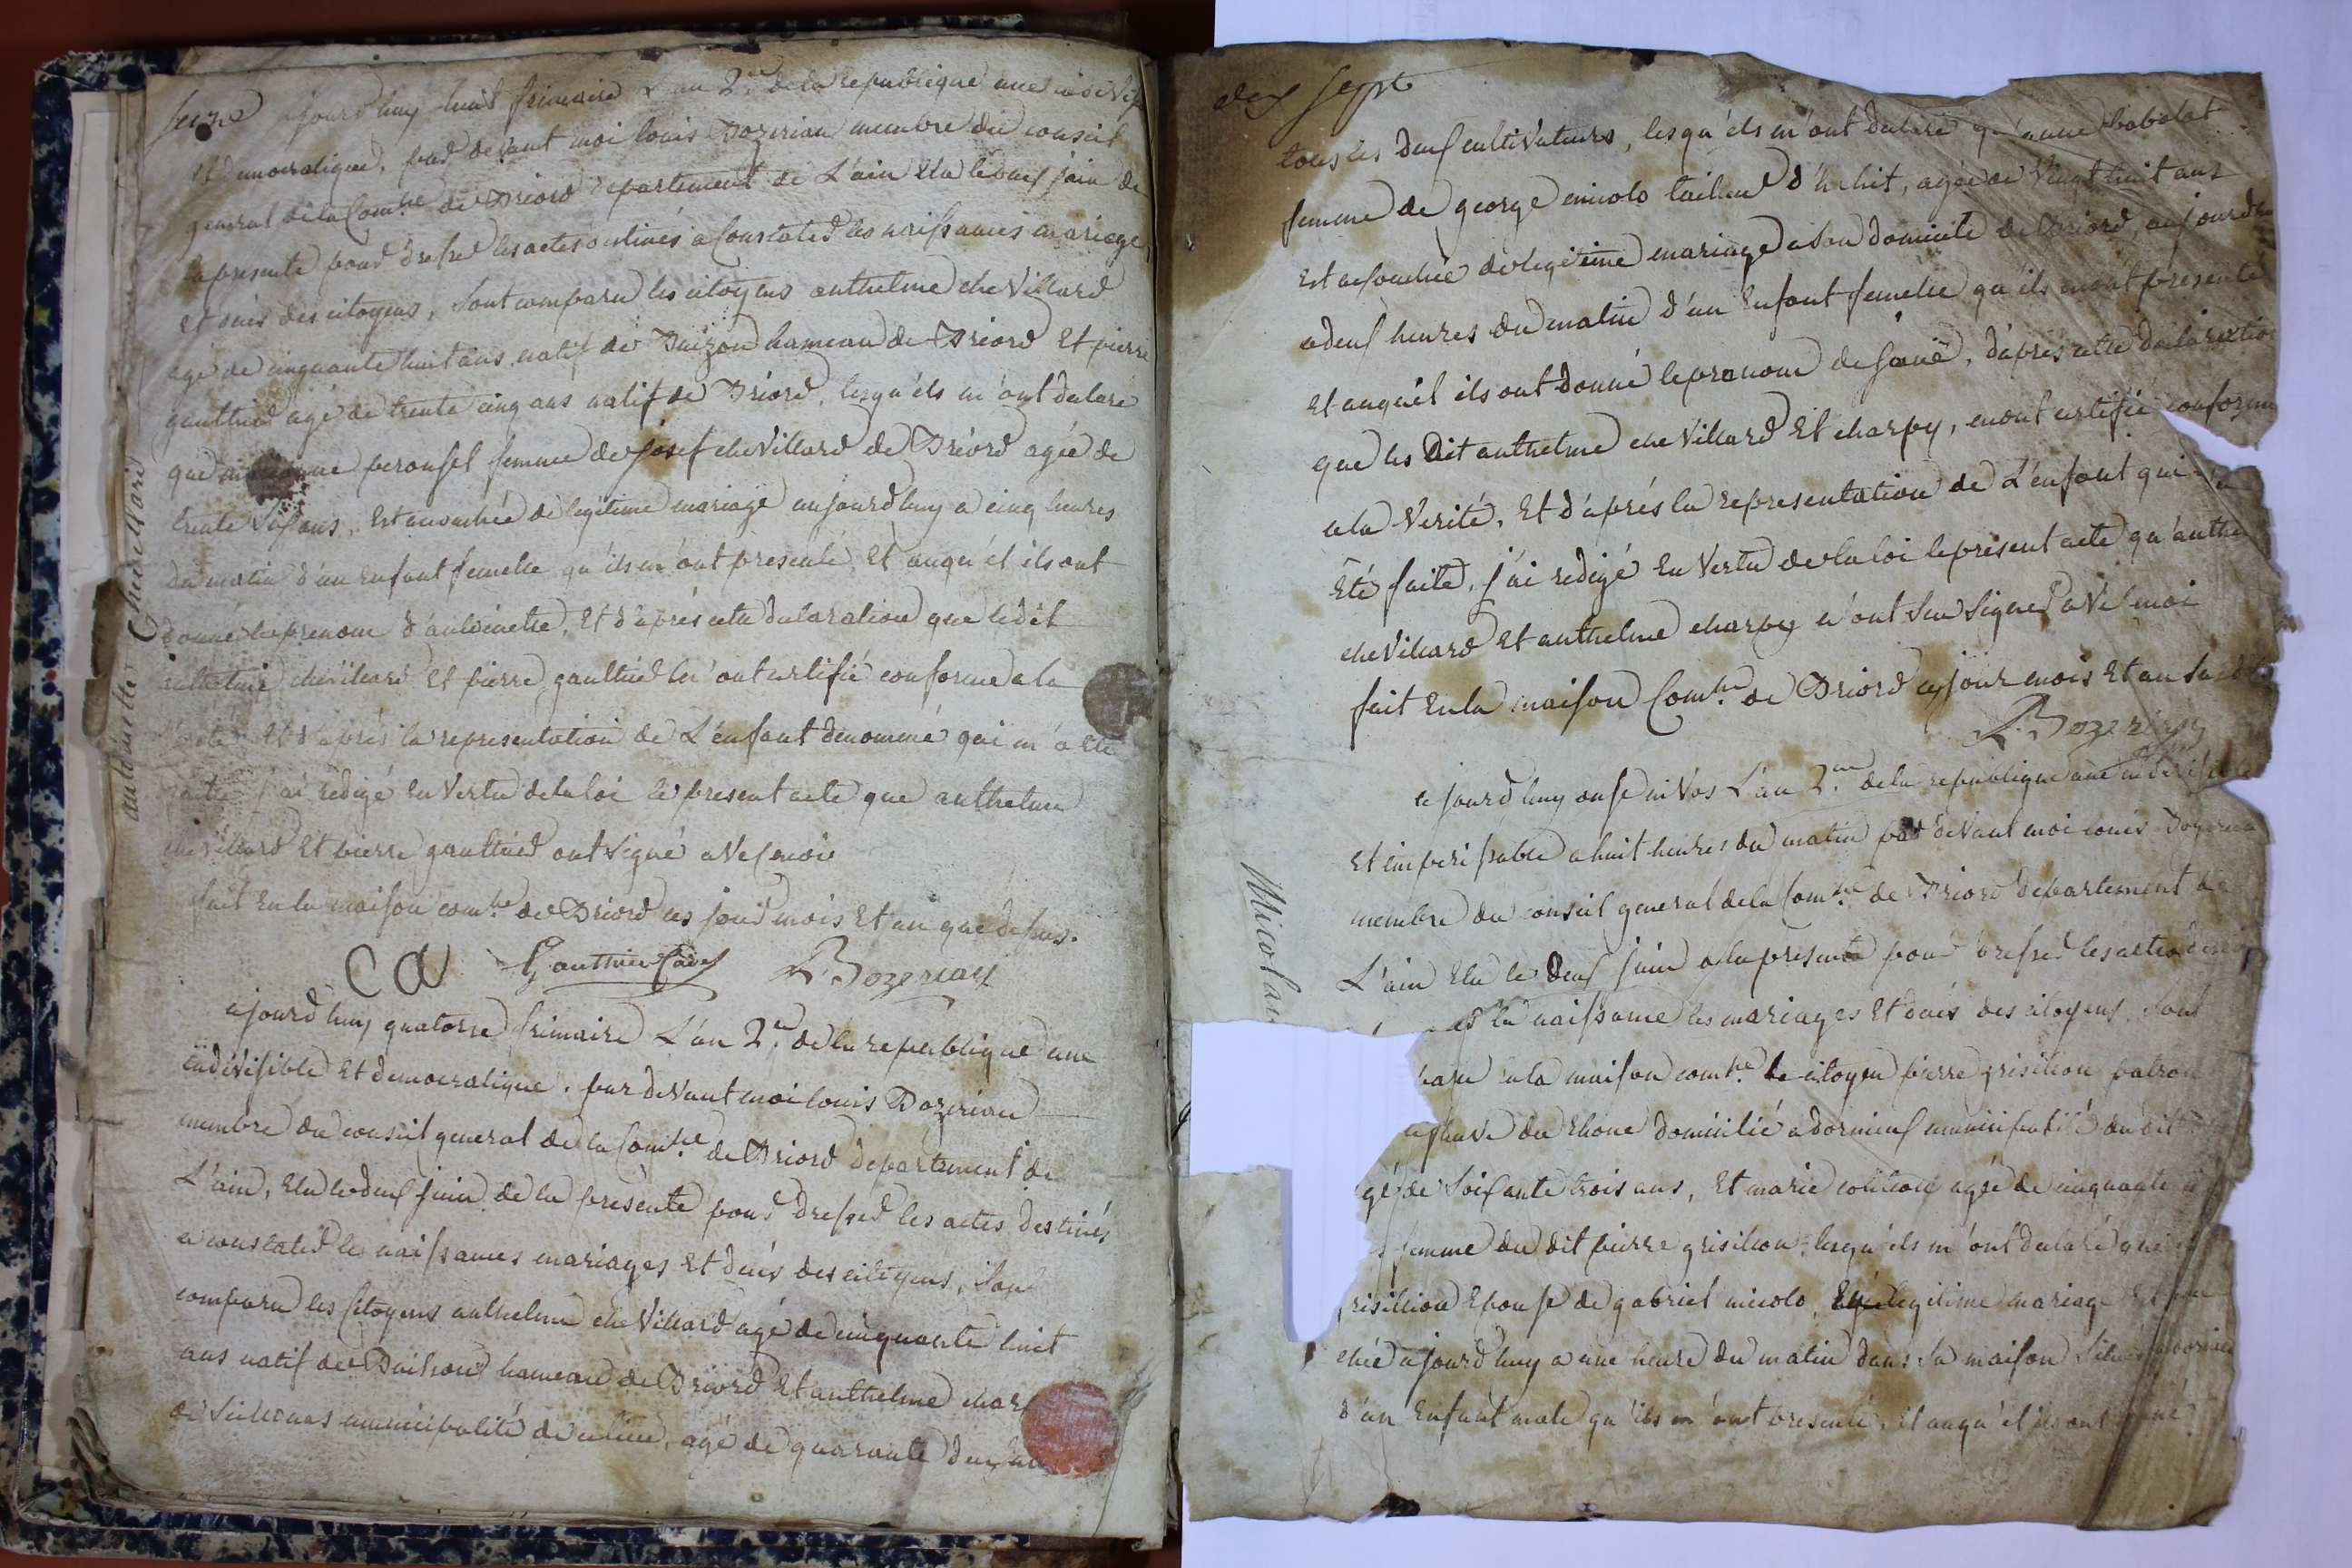 seize ajourd'huy huit frimaire L'an 2.me de la republique une indivisi
et democratique, par devant moi louis Bozerian membre du conseil
general de la Com.ne de Briord departement de L'ain elu le deux juin de
la presente pour dresser les actes destinés a constater les naissances mariages
et décès des citoyens, sont comparu les citoyens anthelme chevillard
agé de cinquante huit ans natif de Buizon hameau de Briord et pierre
gauttier agé de trente cinq ans natif de Briord, lesqu'éls m'ont declaré
que perousel femme de josef chevillard de Briord agée de
trente six ans, Est accouchée de legitime mariage aujourdhuy a cinq heures
du matin d'un enfant femelle qu'ils m'ont presenté, Et auqu'él ils ont
donné le prenom d'antoinette, Et d'aprés cette declaration que ledit
anthelme chevillard Et pierre gauttier m'ont certifié conforme a la
Et d'aprés la representation de L'énfant denommé qui m'a eté
faite j'ai redigé En Vertu de la loi le present acte que anthelme
chevillard Et pierre gauttier ont signé avec moi
fait En la maison com.ne de Briord ces jour mois Et an que dessus.
C a Gauttier L. Bozerian
antoinette Chevillard
ajourd'huy quatorse frimaire L'an 2.me de la republique une
indivisible Et democratique. par devant moi louis Bozerian
membre du conseil general de la Com.ne de Briord departement de
L'ain, Elu le deux juin de la presente pour dresser les actes destinés
a constater les naissances mariages Et décès des citoyens, sont
comparu les Citoyens anthelme chevillard agé de cinquante huit
ans natif de Buison hameau de Briord Et anthelme char
de municipalité de agé de quarante deux ans
dix sept
tous les deux cultivateurs, lesqu'éls m'ont declaré qu'anne babolat
femme de george micolo tailleur d'habit, agée de Vingt huit ans
Est accouchée de legitime mariage a son domicile de Briord, aujourdhu
a deux heures du matin d'un Enfant femelle qu'ils m'ont presenté
Et auquél ils ont donné le pronom de d'aprés cette declaration
que les Dit anthelme chevillard Et charpy, m'ont certifié conforme
a la Verité, Et d'aprés la representation de L'énfant qui m'a
Eté faite, j'ai redigé En Vertu de la loi le present acte qu'anthe
chevillard Et anthelme charpy n'ont seu signer avec moi
fait En la maison Com.ne de Briord ces jour mois Et an susdit
L. Bozerian
ajourd'huy onse nivos L'an 2.me de la republique une indivisible
Et imperissable a huit heures du matin par devant moi louis Bozerian
membre du conseil general de la Com.ne de Briord departement de
L'ain Elu le Deux juin a la presente pour dresser les actes desti
la naissance les mariages Et décès des citoyens, sont
paru a la maison com.ne le citoyen pierre grisilion patron
du Rhone domicilié a dornieux municipalité dudit
gé de soisante trois ans, Et marie agée de cinquante
femme du dit pierre grisilion, lesqu'éls m'ont declaré que
risillion Epouse de gabriel micolo, legitime mariage
chée ajourd'huy a une heure du matin dans sa maison
d'un Enfant male qu'ils m'ont presenté, Et auqu'él ils ont donné
Micolau